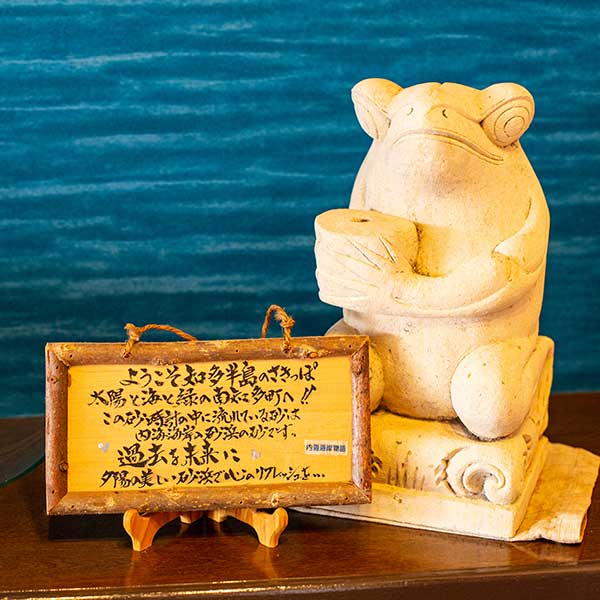 ようこそ知多半島のさきっぽ
太陽と海と緑の南知多町へ!!
この砂時計の中に流れている砂は
内海海岸の砂浜の砂です。
内海海岸物語
過去を未来に
夕陽の美しい砂浜で心のリフレッシュを…